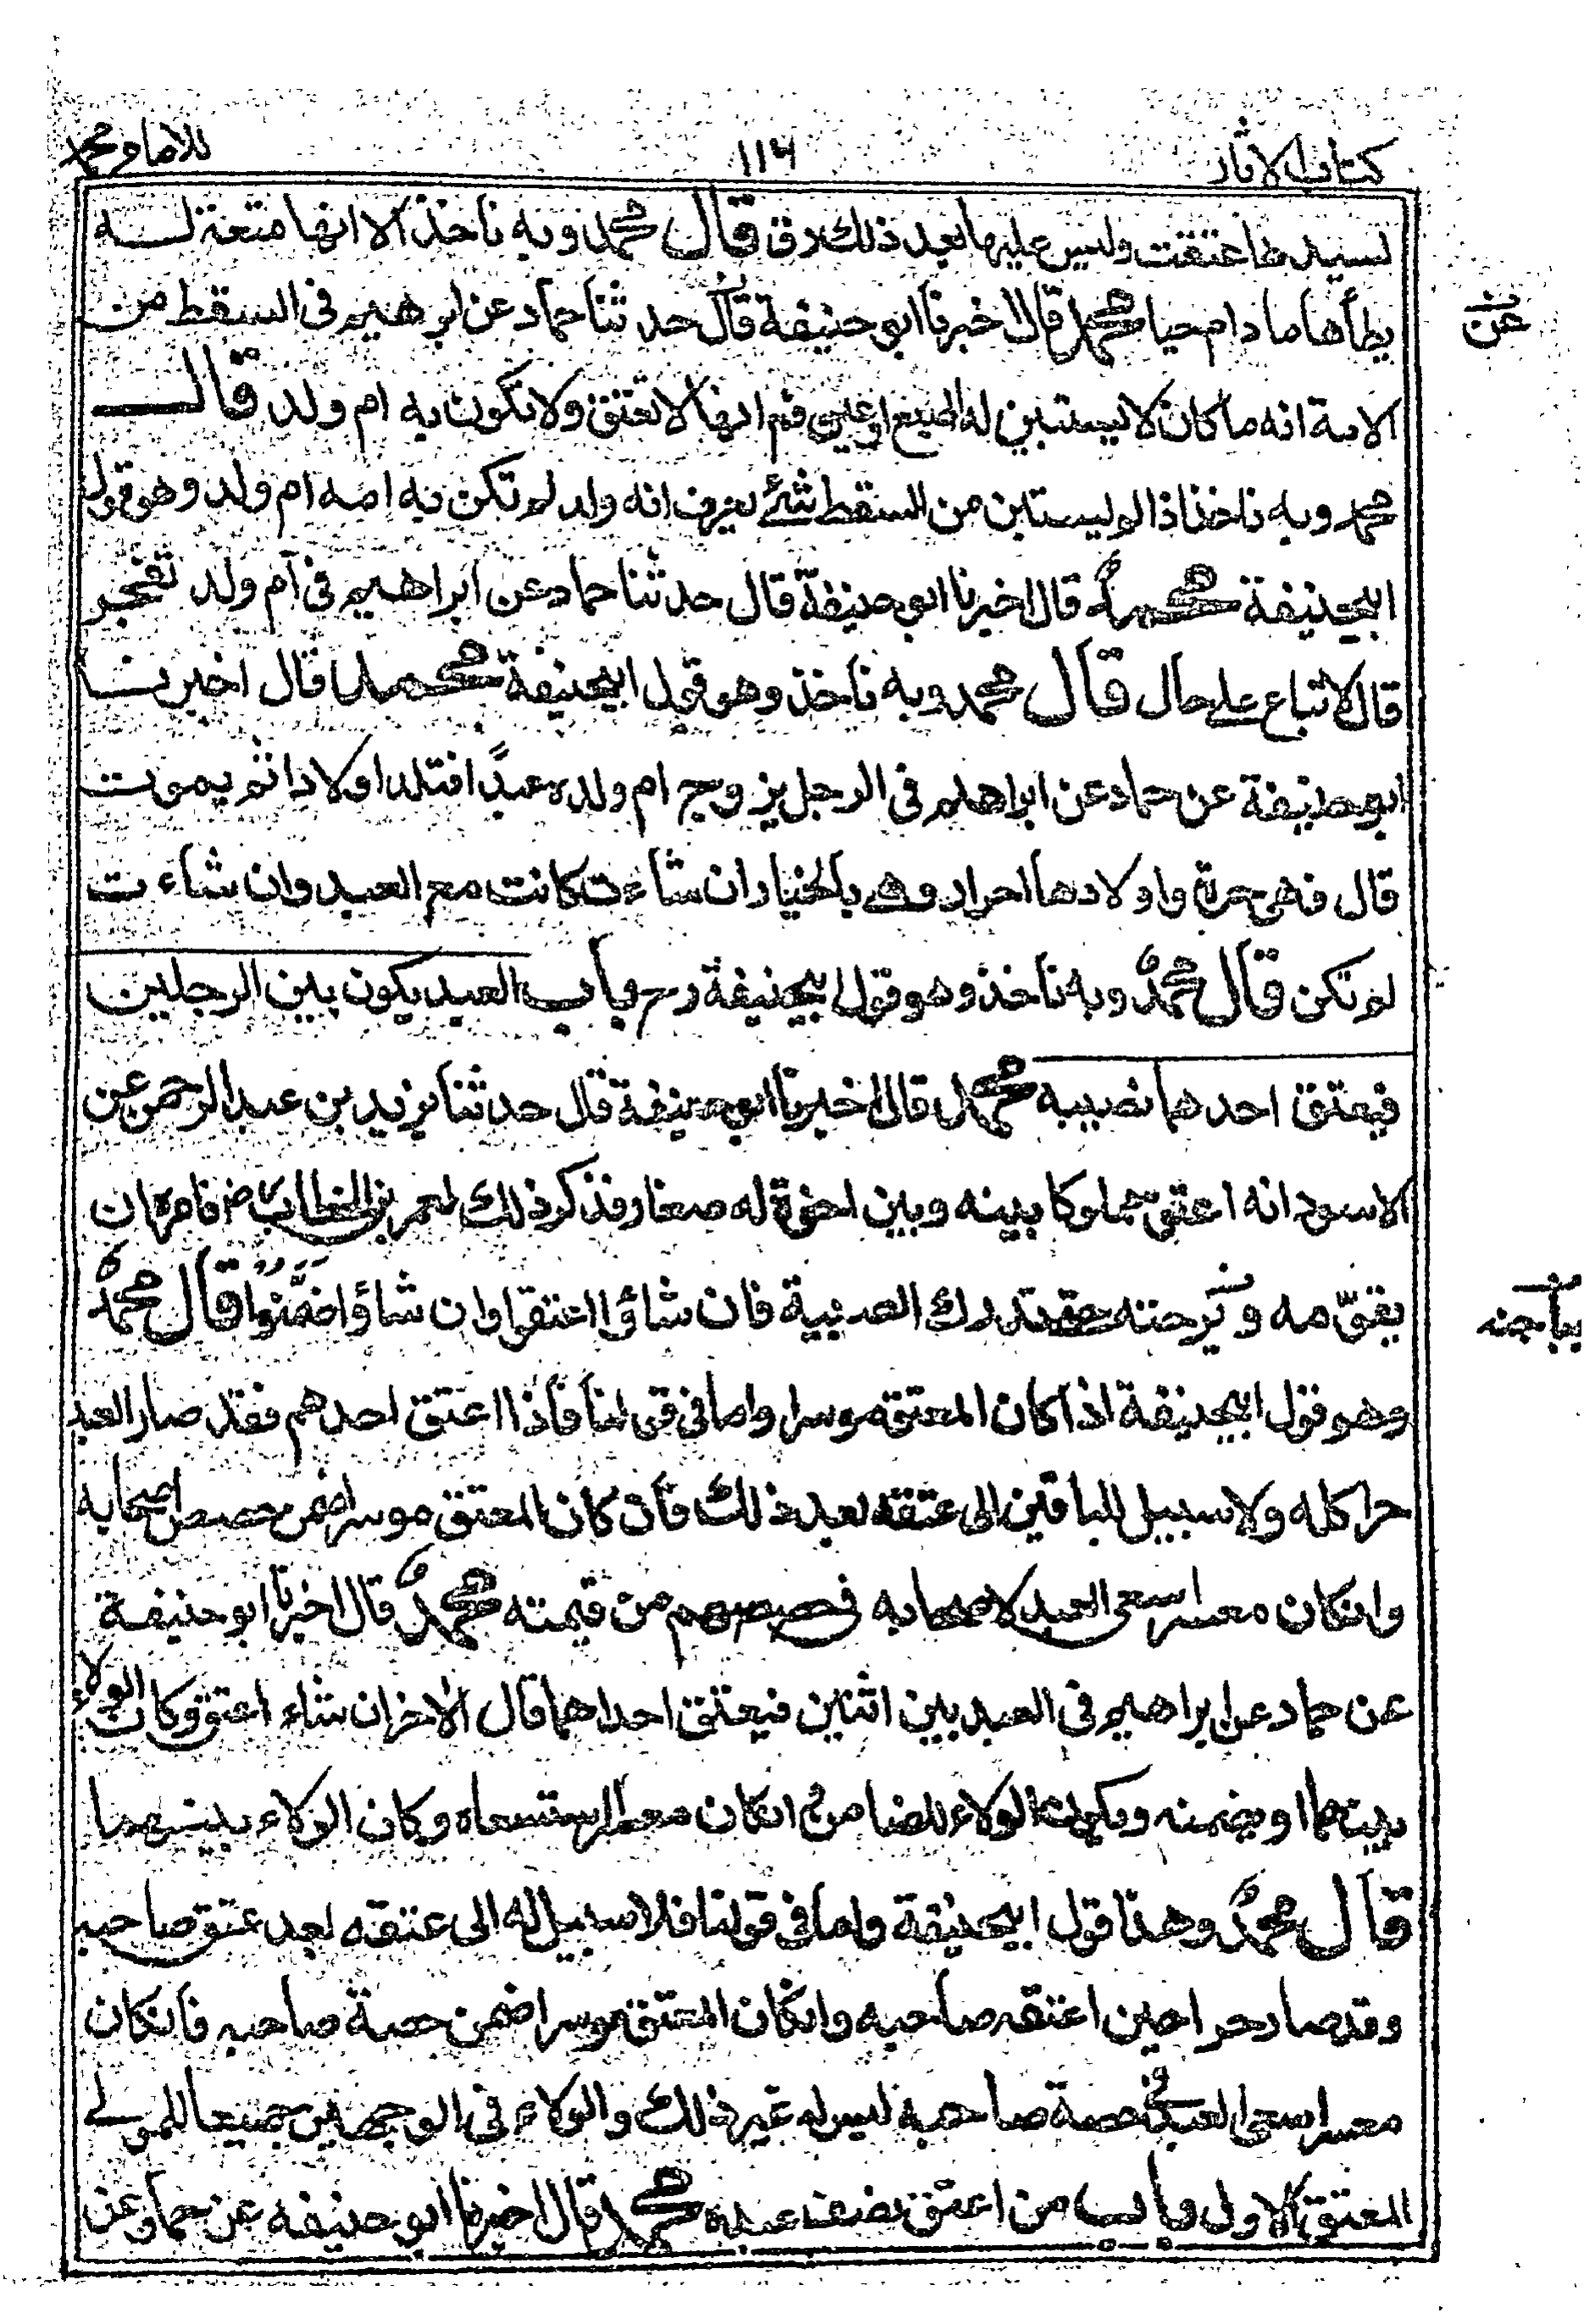 كتاب الاثار
١١٦
للامام محمد
لسيدها عتقت وليس عليها بعد ذلك رق قال محمد وبه ناخذ الا انها متعة لـــه
يطأها ما دام حيا محمد قال اخبرنا ابو حنيفة قال حدثنا حماد عن ابرهيم في السقط من
عن
الامة انه ما كان لا يستبين له اصبع او عين او فم انها لا تعتق ولا تكون به ام ولد قالــــ
محمد وبه ناخذ اذا لم يستبن من السقط شئ يعرف انه ولد لم تكن به امه ام ولد وهو قول
ابيحنيفة محمد قال اخبرنا ابو حنيفة قال حدثنا حماد عن ابراهيم في ام ولد تفجر
قال لا تباع على حال قال محمد وبه ناخذ وهو قول ابيحنيفة محمد قال اخبرنــا
ابو حنيفة عن حماد عن ابراهيم في الرجل يزوج ام ولده عبدًا فتلد اولادا ثم يموت
قال فهى حرة واولادها احرار وهى بالخيار ان شاءت كانت مع العبد وان شاءت
لم تكن قال محمد وبه ناخذ وهو قول ابيحنيفة رح باب العبد يكون بين الرجلين
فيعتق احدهما نصيبه محمد قال اخبرنا ابو حنيفة قال حدثنا يزيد بن عبد الرحمن عن
الاسود انه اعتق مملوكا بينه وبين اخوة له صغار فذكر ذلك لعمر بن الخطاب رض فامره ان
يقوّمه و يرجئه حتى تدرك الصبية فان شاؤا اعتقوا وان شاؤا ضمَّنوا قال محمد
وهو قول ابيحنيفة اذا كان المعتق موسرا واما في قولنا فاذا اعتق احدهم فقد صار العبد
حرا كله ولا سبيل للباقين الى عتقه بعد ذلك فان كان المعتق موسرا ضمن حصص اصحابه
وانكان معسرا سعى العبد لاصحابه في حصصهم من قيمته محمد قال اخبرنا ابو حنيفة
عن حماد عن ابراهيم في العبد بين اثنين فيعتق احداهما قال الآخر ان شاء اعتق وكان الولاء
بينهما او يضمنه ويكون الولاء للضامن وانكان معسرا استسعاه وكان الولاء بينهما
قال محمد وهذا قول ابيحنيفة واما في قولنا فلا سبيل له الى عتقه بعد عتق صاحبه
وقد صار حرا حين اعتقه صاحبه وانكان المعتق موسرا ضمن حصة صاحبه فانكان
معسرا سعى العبد في حصة صاحبه ليس له غير ذلك والولاء في الوجهين جميعا للمولى
المعتق الاول باب من اعتق نصف عبده محمد قال اخبرنا ابو حنيفه عن حماد عن